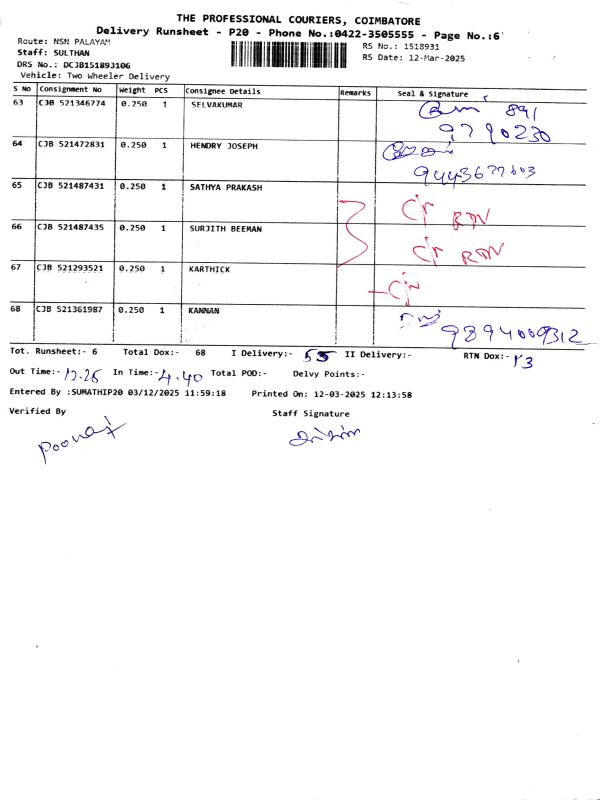 THE PROFESSIONAL COURIERS, COIMBATORE
Delivery Runsheet - P20 - Phone No.:0422-3505555 - Page No.:6
Route: NSN PALAYAM
Staff: SULTHAN
DRS No.: DCJB151893106
Vehicle: Two Wheeler Delivery
RS No.: 1518931
RS Date: 12-Mar-2025
S No Consignment No Weight PCS Consignee Details Remarks Seal & Signature
63 CJB 521346774 0.250 1 SELVAKUMAR 891
9790230
64 CJB 521472831 0.250 1 HENDRY JOSEPH
9443677603
65 CJB 521487431 0.250 1 SATHYA PRAKASH RTN
66 CJB 521487435 0.250 1 SURJITH BEEMAN RTN
67 CJB 521293521 0.250 1 KARTHICK
68 CJB 521361987 0.250 1 KANNAN 9894009312
Tot. Runsheet:- 6 Total Dox:- 68 I Delivery:- 55 II Delivery:- RTN Dox:- 13
Out Time:- 12.25 In Time:- 4.40 Total POD:- Delvy Points:-
Entered By :SUMATHIP20 03/12/2025 11:59:18 Printed On: 12-03-2025 12:13:58
Verified By Staff Signature